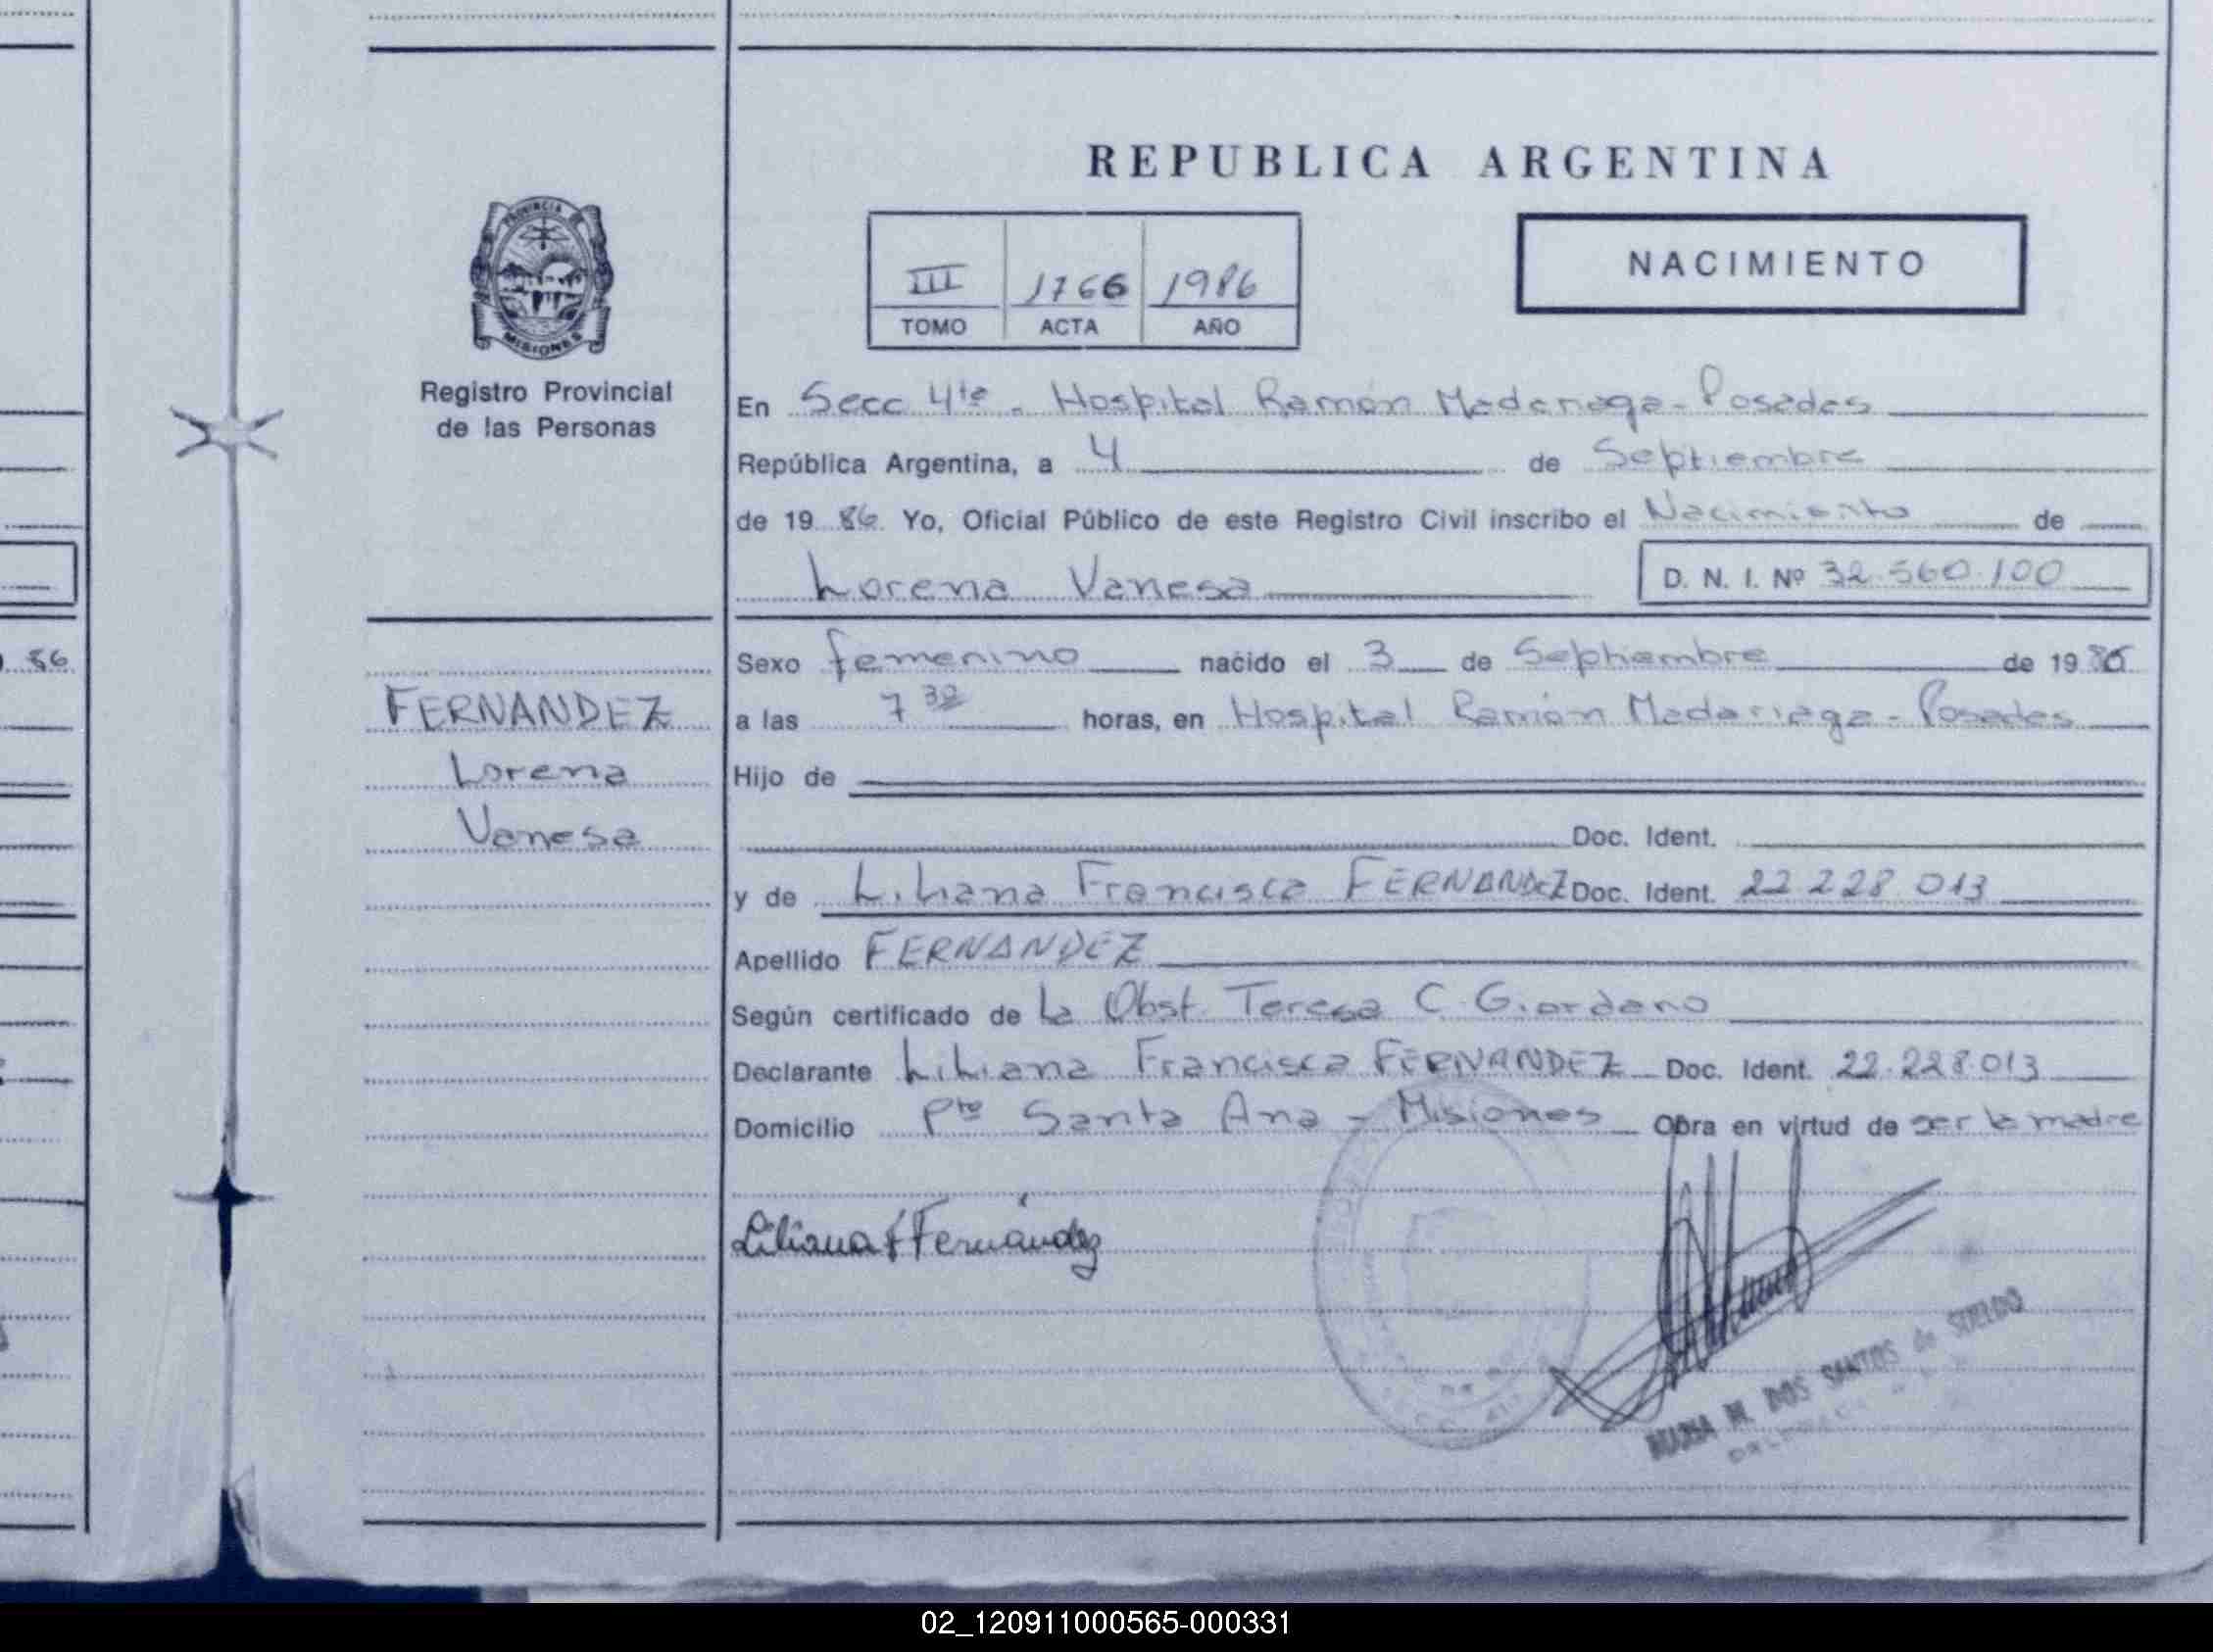 REPUBLICA ARGENTINA
PROVINCIA DE
MISIONES
Registro Provincial
de las Personas
III 1766 1986
TOMO ACTA AÑO
NACIMIENTO
En Secc 4ta - Hospital Ramón Madariaga - Posadas
República Argentina, a 4 de Septiembre
de 19 86 Yo, Oficial Público de este Registro Civil inscribo el Nacimiento de
Lorena Vanesa D. N. I. Nº 32.560.100
86
Sexo femenino nacido el 3 de Septiembre de 19 86
FERNANDEZ
Lorena
Vanesa
a las 7 30 horas, en Hospital Ramón Madariaga - Posadas
Hijo de
Doc. Ident.
y de Liliana Francisca FERNANDEZ Doc. Ident. 22.228.013
Apellido FERNANDEZ
Según certificado de La Obst. Teresa C. Giordano
Declarante Liliana Francisca FERNANDEZ Doc. Ident. 22.228.013
Domicilio Pto Santa Ana - Misiones Obra en virtud de ser la madre
Liliana F Fernández
MARIA M. DOS SANTOS de SUELDO
02_120911000565-000331